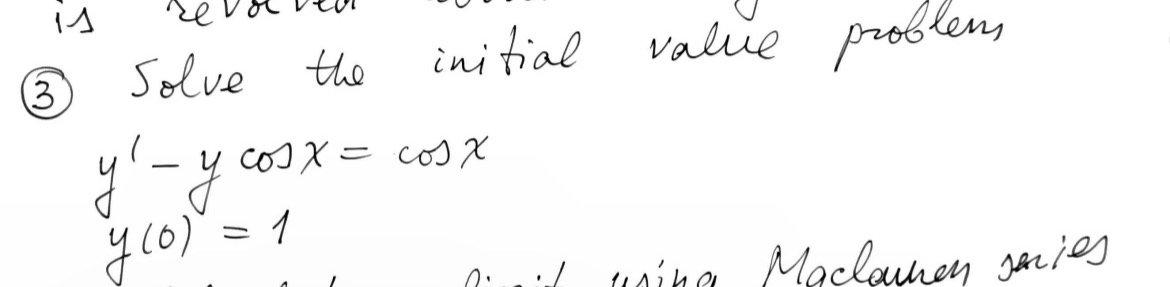 is revolved
③ Solve the initial value problem
y' - y cos x = cos x
y(0) = 1
limit using Maclauren series